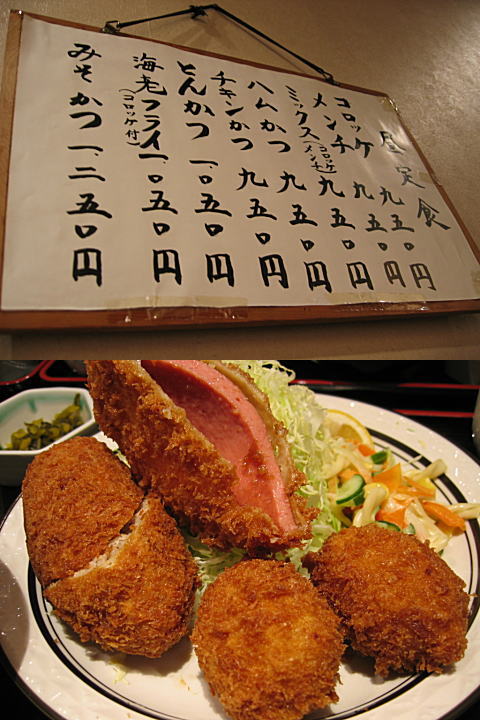 昼定食
コロッケ 九五〇円
メンチ 九五〇円
ミックス(コロッケ メンチ) 九五〇円
ハムかつ 九五〇円
チキンかつ 九五〇円
とんかつ 一、〇五〇円
海老フライ(コロッケ付) 一、〇五〇円
みそかつ 一、二五〇円